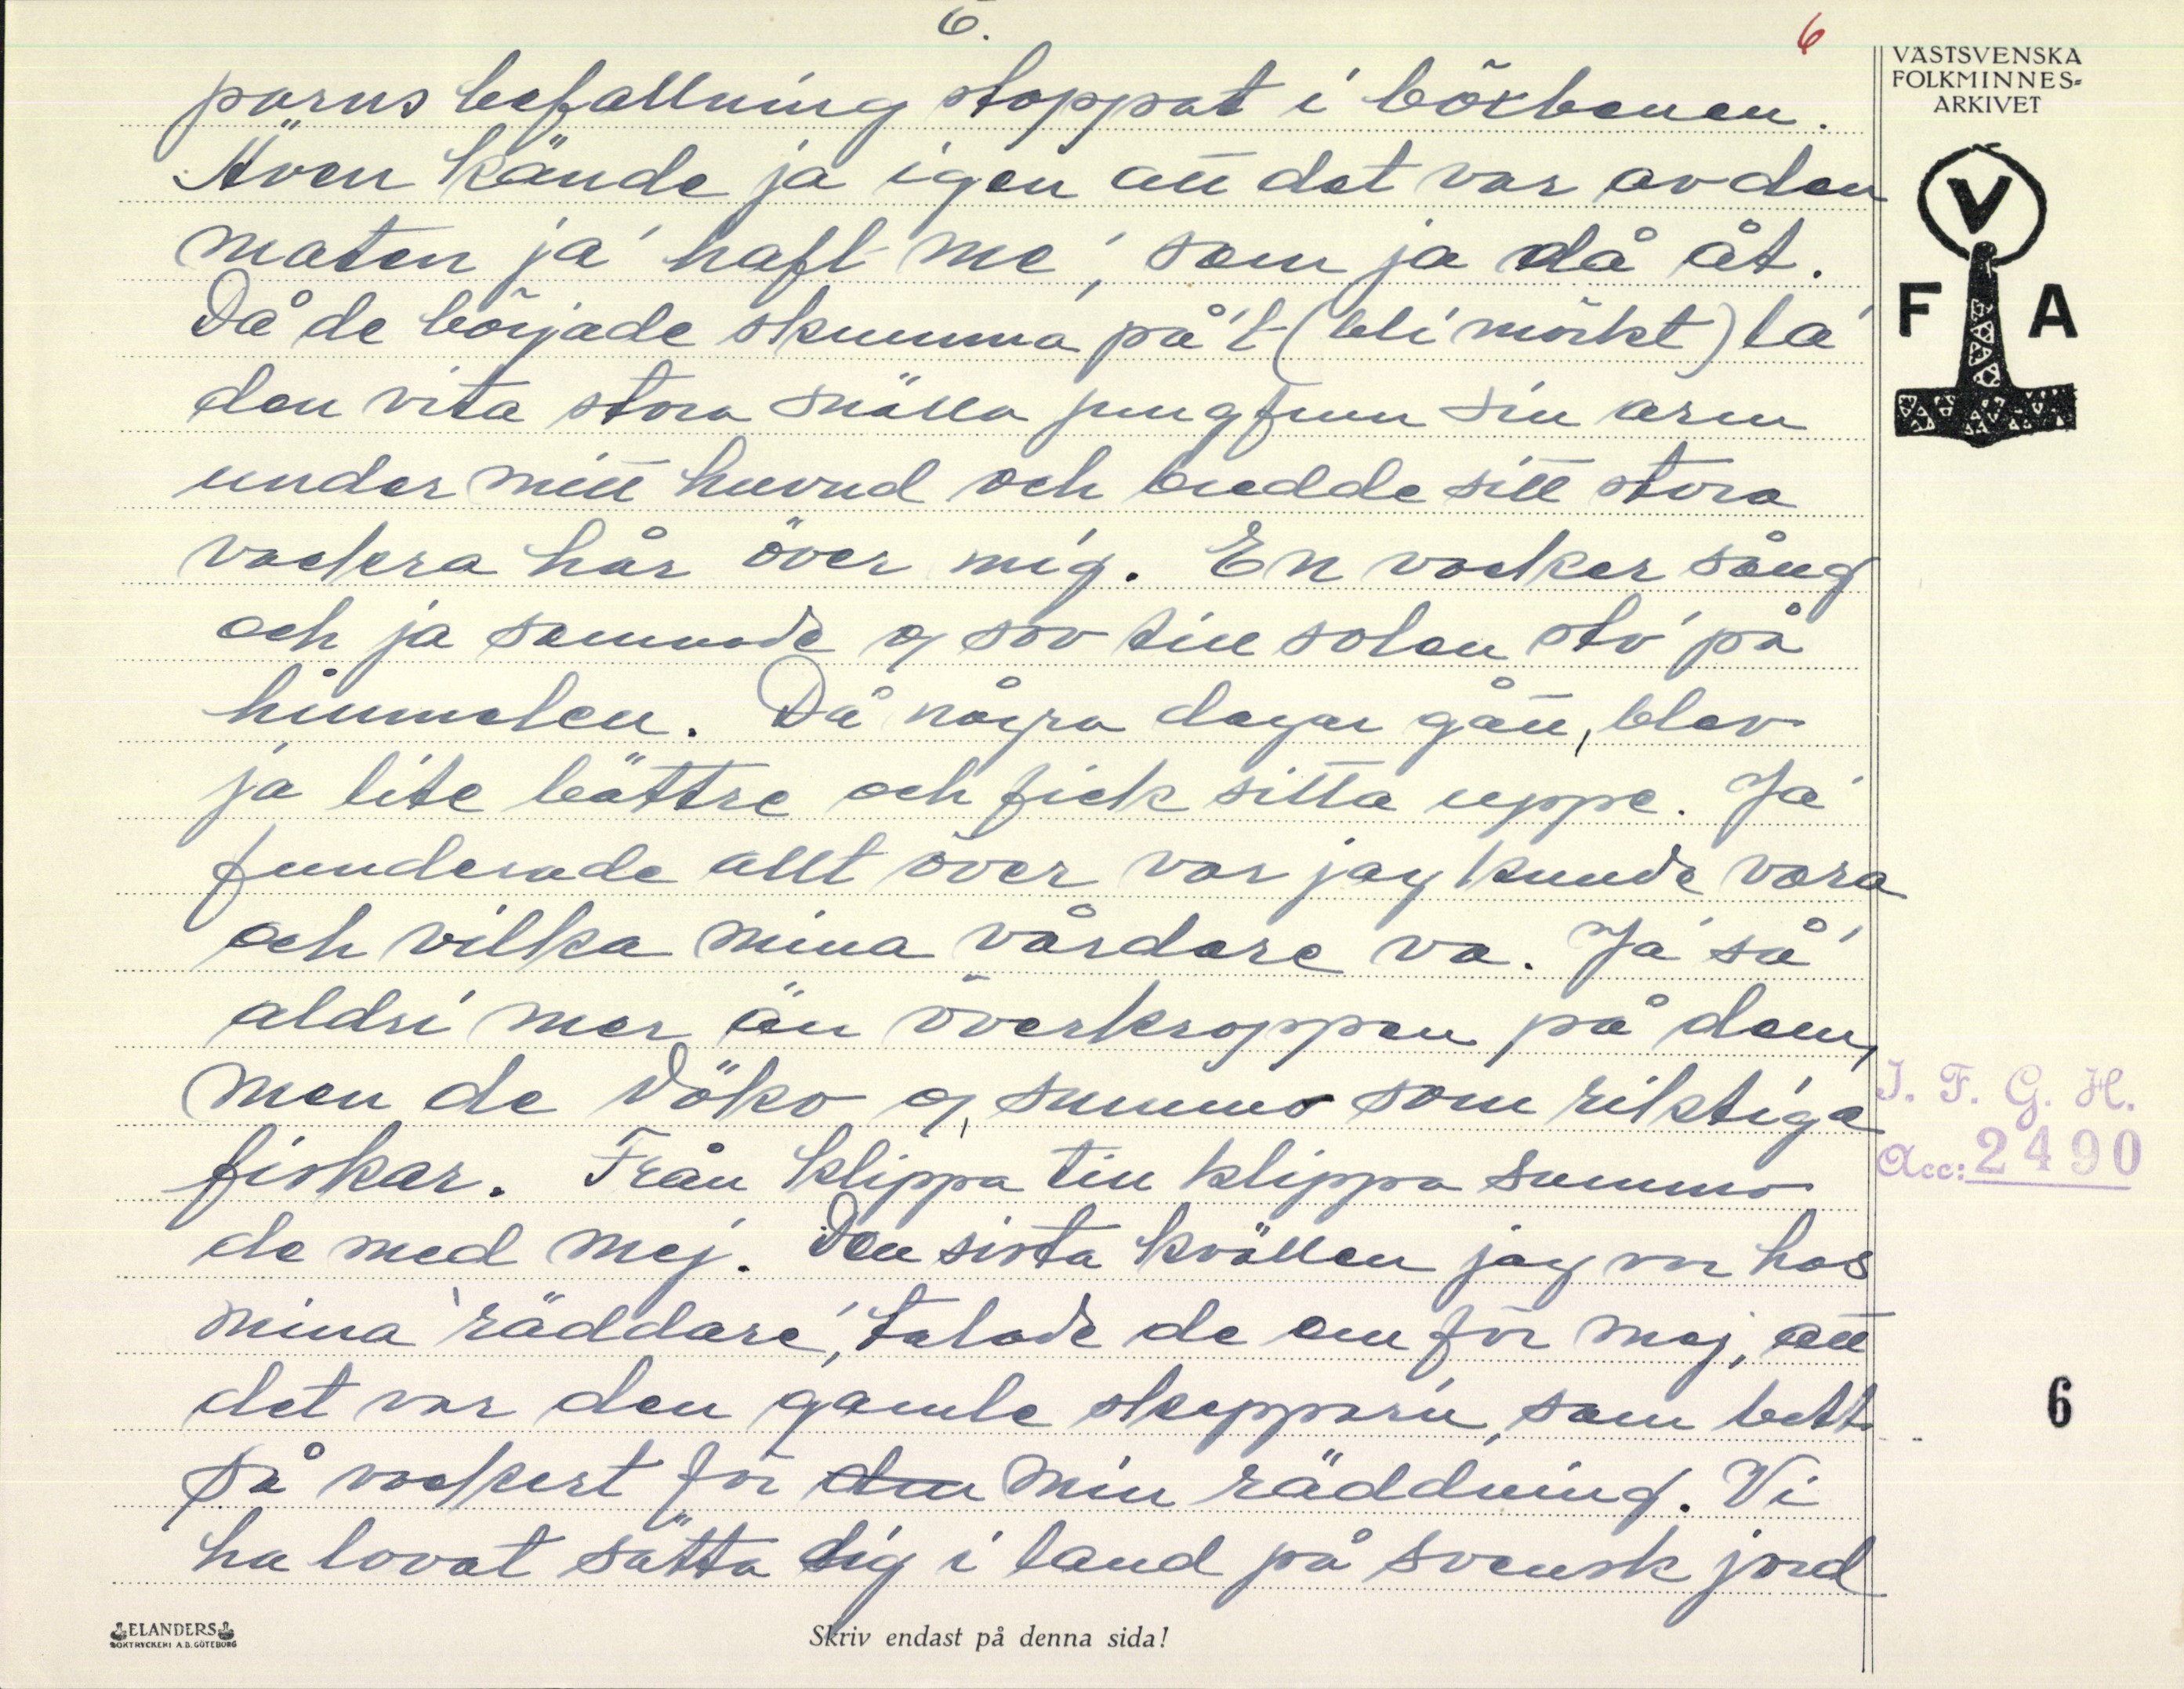 6.
6
VÄSTSVENSKA
FOLKMINNES-
ARKIVET
V
F A
parns befallning stoppat i böxbenen.
Även kände ja igen att det var av den
maten ja' haft me', som ja då åt.
Då de började skumma på't (bli mörkt) la'
den vita stora snälla jungfrun sin arm
under mitt huvud och bredde sitt stora
vackra hår över mig. En vacker sång
och ja somnade o sov till solen sto' på
himmelen. Då några dagar gått, blev
ja lite bättre och fick sitta uppe. Ja'
funderade allt över var jag kunde vara
och vilka mina vårdare va. Ja' så'
aldri' mer än överkroppen på dem,
men de döko o, summo som riktiga
fiskar. Från klippa till klippa summo
de med mej. Den sista kvällen jag var hos
mina 'räddare', talade de om för mej, att
det var den gamle skepparn, som bett
så vackert för min räddning. Vi
ha lovat sätta dig i land på svensk jord
I. F. G. H.
Acc: 2490
6
ELANDERS
BOKTRYCKERI A.B. GÖTEBORG
Skriv endast på denna sida!